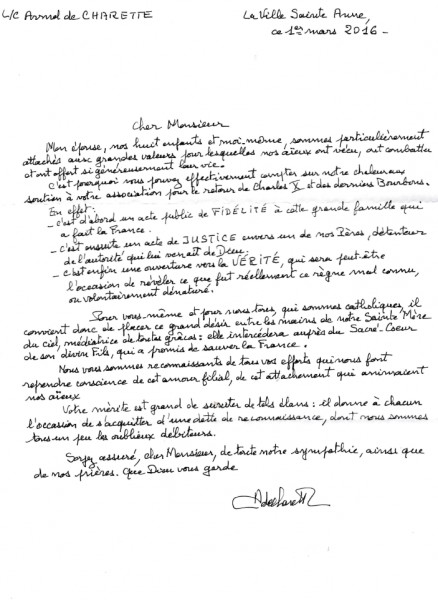 L/C Armel de CHARETTE
La Ville Sainte Anne,
ce 1er mars 2016 -
Cher Monsieur
Mon épouse, nos huit enfants et moi-même, sommes particulièrement
attachés aux grandes valeurs pour lesquelles nos aïeux ont vécu, ont combattu
et ont offert si généreusement leur vie.
C'est pourquoi vous pouvez effectivement compter sur notre chaleureux
soutien à votre association pour le retour de Charles X et des derniers Bourbons.
En effet :
- c'est d'abord un acte public de FIDÉLITÉ à cette grande famille qui
a fait la France.
- c'est ensuite un acte de JUSTICE envers un de nos Pères, détenteur
de l'autorité qui lui venait de Dieu.
- c'est enfin une ouverture vers la VÉRITÉ, qui sera peut-être
l'occasion de révéler ce que fut réellement ce règne mal connu,
ou volontairement dénaturé.
Pour vous même et pour nous tous, qui sommes catholiques, il
convient donc de placer ce grand désir entre les mains de notre Sainte Mère
du ciel, médiatrice de toutes grâces : elle intercèdera auprès du Sacré-Coeur
de son divin Fils, qui a promis de sauver la France.
Nous vous sommes reconnaissants de tous vos efforts qui nous font
reprendre conscience de cet amour filial, de cet attachement qui animaient
nos aïeux
Votre mérite est grand de susciter de tels élans : il donne à chacun
l'occasion de s'acquitter d'une dette de reconnaissance, dont nous sommes
tous un peu les oublieux débiteurs.
Soyez assuré, cher Monsieur, de toute notre sympathie, ainsi que
de nos prières. Que Dieu vous garde